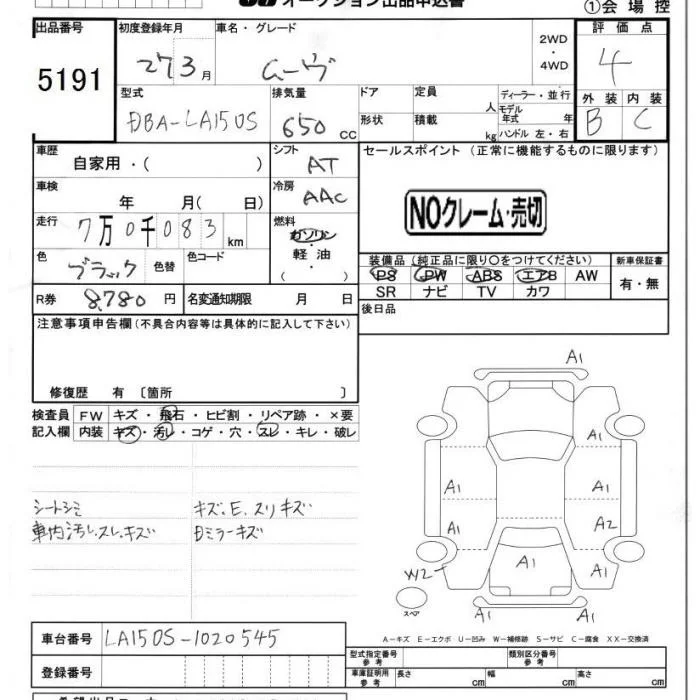 オークション出品申込書
①会場控
出品番号
5191
初度登録年月
27 3月
車名・グレード
ムーヴ
2WD
・
4WD
評価点
4
型式
DBA-LA150S
排気量
650 CC
ドア
形状
定員
人
積載
kg
ディーラー・並行
モデル年式 年
ハンドル 左・右
外装 内装
B C
車歴
自家用・( )
シフト
AT
セールスポイント (正常に機能するものに限ります)
車検
年 月( 日)
冷房
AAC
NOクレーム・売切
走行
7万0千083 km
燃料
ガソリン・
軽油・
( )
色
ブラック
色替
色コード
装備品 (純正品に限り○をつけてください)
PS PW ABS エアB AW
SR ナビ TV カワ
新車保証書
有・無
R券 8,780 円
名変通知期限 月 日
後日品
注意事項申告欄(不具合内容等は具体的に記入して下さい)
修復歴 有 〔箇所 〕
検査員 FW キズ・飛石・ヒビ割・リペア跡・×要
記入欄 内装 キズ・汚レ・コゲ・穴・スレ・キレ・破レ
シートシミ
キズ、E、スリキズ
車内汚レ、スレ、キズ
ミラーキズ
A1
A1
A1 A1
A1 A2
A1
W2
A1 A1
スペア
A-キズ E-エクボ U-凹み W-補修跡 S-サビ C-腐食 XX-交換済
車台番号 LA150S-1020545
型式指定番号
参考
類別区分番号
参考
登録番号
車庫証明用
参考
長さ cm 幅 cm 高さ cm